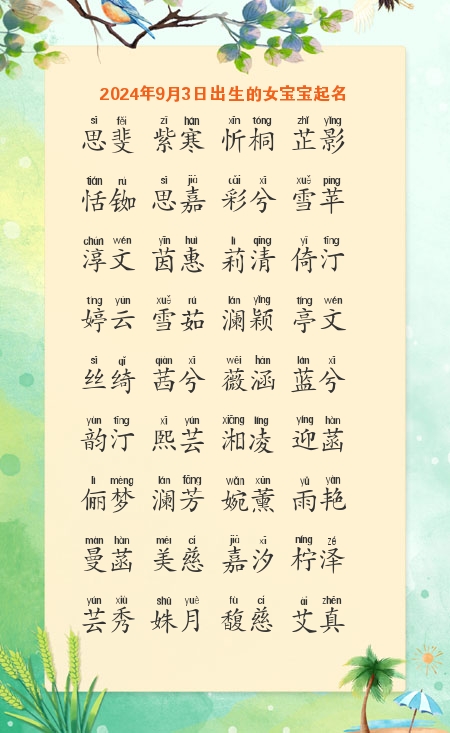 2024年9月3日出生的女宝宝起名
sī fěi zǐ hán xīn tóng zhǐ yǐng
思斐 紫寒 忻桐 芷影
tián rú sī jiā cǎi xī xuě píng
恬铷 思嘉 彩兮 雪苹
chún wén yīn huì lì qīng yǐ tīng
淳文 茵惠 莉清 倚汀
tíng yún xuě rú lán yǐng tíng wén
婷云 雪茹 澜颖 亭文
sī qǐ qiàn xī wēi hán lán xī
丝绮 茜兮 薇涵 蓝兮
yùn tīng xī yún xiāng líng yíng hàn
韵汀 熙芸 湘凌 迎菡
lì mèng lán fāng wǎn xūn yǔ yàn
俪梦 澜芳 婉薰 雨艳
màn hàn měi cí jiā xī níng zé
曼菡 美慈 嘉汐 柠泽
yún xiù shū yuè fù cí ài zhēn
芸秀 姝月 馥慈 艾真